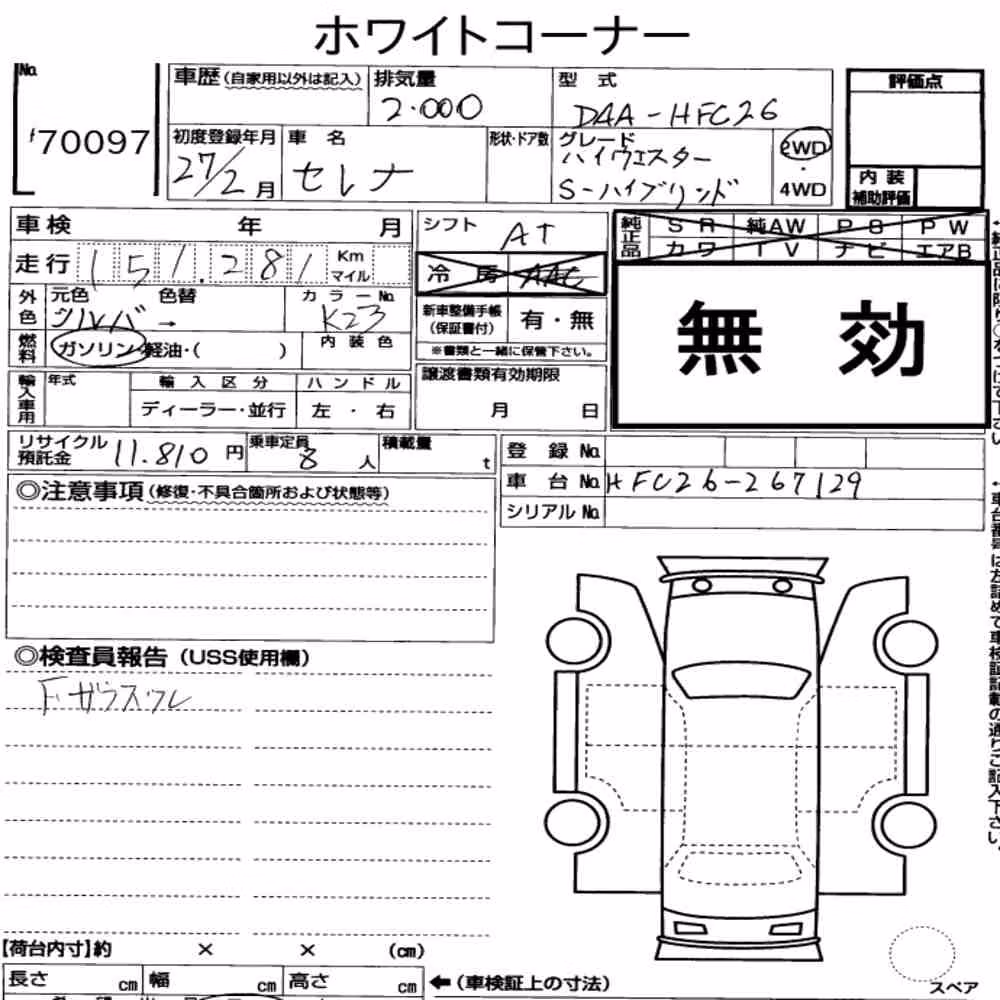 ホワイトコーナー
No.
70097
車歴(自家用以外は記入)
排気量
2.000
型 式
DAA-HFC26
評価点
初度登録年月
27/2月
車 名
セレナ
形状・ドア数
グレード
ハイウエスター
S-ハイブリッド
2WD
・
4WD
内装
補助評価
車検 年 月
シフト
AT
純正品
SR 純AW PS PW
カワ TV ナビ エアB
走行 151.281 Km
マイル
冷 房 AAC
無 効
外色
元色
シルバー
色替
→
カラーNo.
K23
新車整備手帳
(保証書付)
有・無
※書類と一緒に保管下さい。
燃料
ガソリン・軽油・( )
内装色
輸入車用
年式
輸入区分
ディーラー・並行
ハンドル
左・右
譲渡書類有効期限
月 日
リサイクル
預託金
11.810円
乗車定員
8人
積載量
t
登録No.
車台No. HFC26-267129
シリアルNo.
◎注意事項(修復・不具合箇所および状態等)
◎検査員報告(USS使用欄)
Fガラスワレ
【荷台内寸】約 × × (cm)
長さ cm 幅 cm 高さ cm ←(車検証上の寸法)
スペア